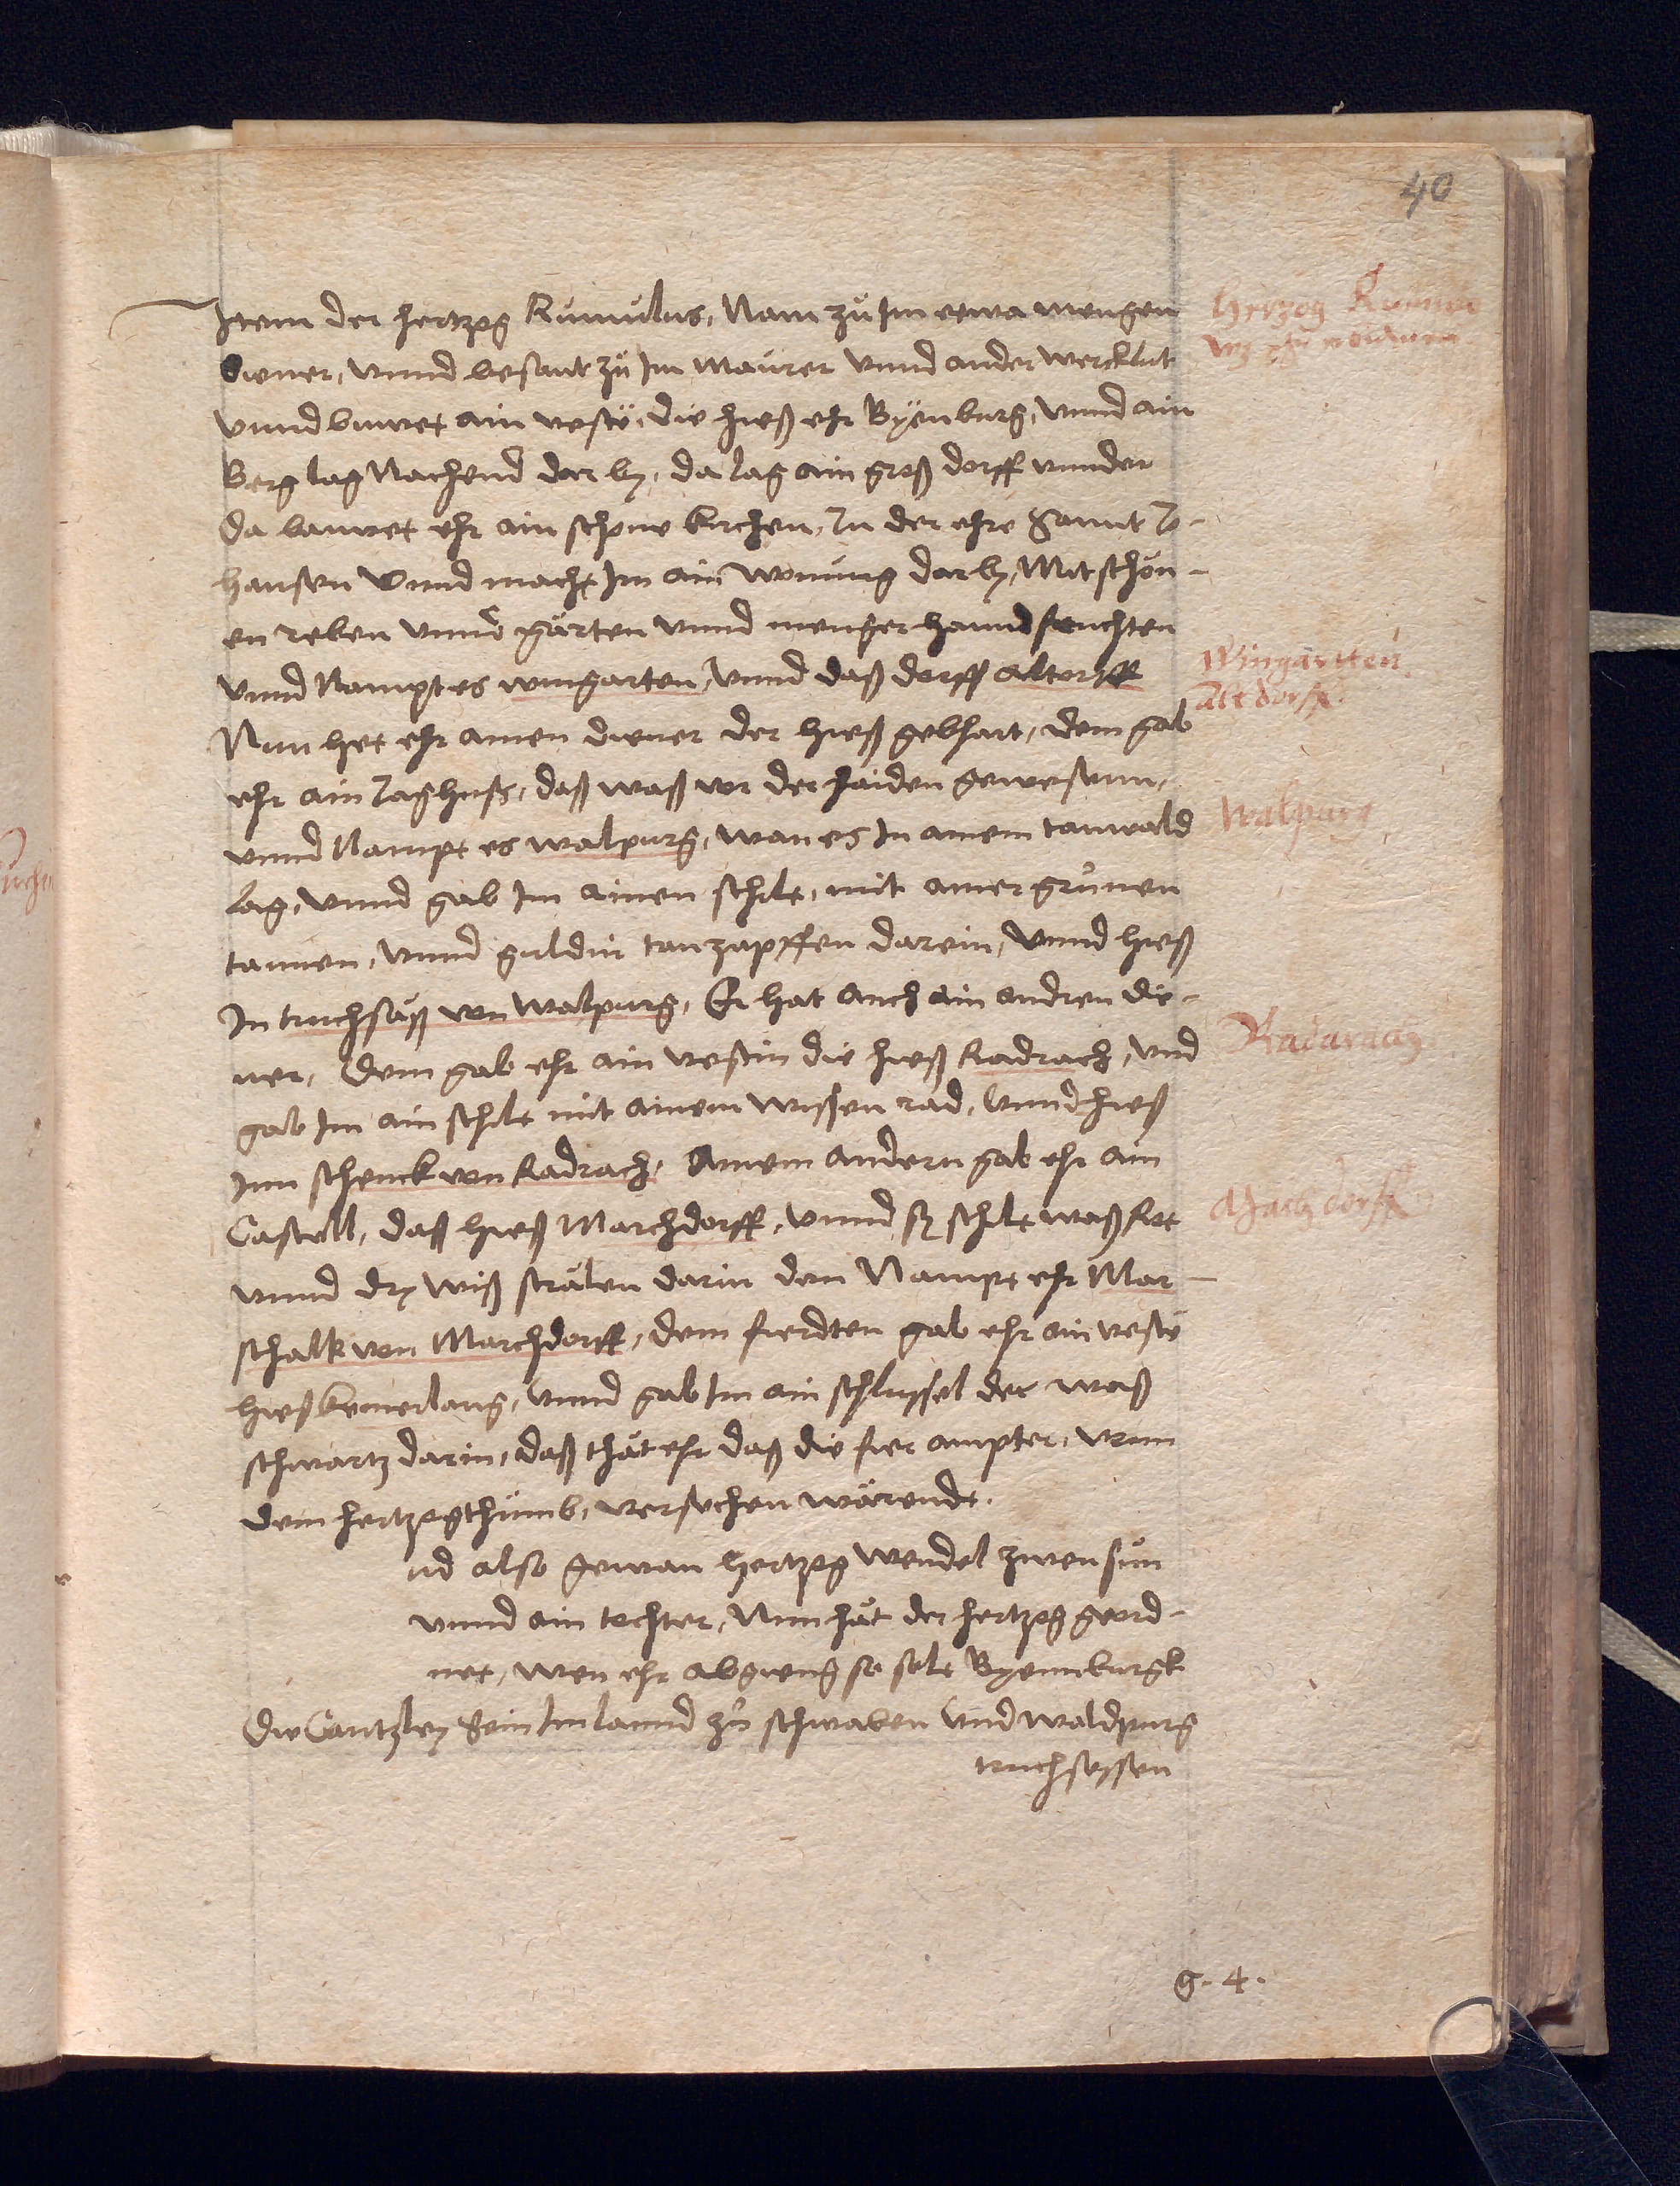 40
Item der hertzog Rumulus, Nam zu Im etwa mengen
diener, vnnd besant zu Im Maurer vnnd ander wercklut
vnnd buwet ain veste, die hieß ehr Byenburg, vnnd ain
Berg lag Nachend dar by, da lag ain groß dorff vnnder
da bauwet ehr ain schone kirchen, In der ehre Sannt Jo-
hansen Vnnd macht Im ain wonung dar by, Mit schön-
en reben vnnd gärten vnnd menger hannd fruchten
vnnd Nampt es wingarten, vnnd daß dorff altorff
Nun het ehr ainen diener der hieß gebhart, dem gab
ehr ain Jaghuß, daß waß vor der haiden gewesenn,
vnnd Nampt es walpurg, wan es In ainem tanwald
lag, vnnd gab Im ainen schilt, mit ainer grünen
tannen, vnnd guldin tanzapffen darein, Vnnd hieß
In truchsäß von Walpurg, Er hat auch ain andren die-
ner, dem gab ehr ain vestin die hieß Radrach, vnd
gab Im ain schilt mit ainem wissen rad, Vnnd hieß
Inn schenck von Radrach, Ainem andern gab ehr ain
Castell, daß hieß Marchdorff, vnnd sy schilt waß rot
vnnd dry wiß strälen darin den Nampt ehr Mar-
schalk von Marchdorff, dem fierdten gab ehr ain veste
hieß kemerlang, vnnd gab Im ain schlussel der waß
schwartz darin, daß thät ehr daß die fier ampter, vonn
dem hertzogthumb, versechen wärendt.
nd also gewan hertzog Wendel zwen sun
vnnd ain tochter, Nun hät der hertzog geord-
net, wen ehr abgieng so solt Byennburgk
die Cantzley Sein Im lannd zu schwaben Vnd waldpurg
truchsessen
g. 4.
Hertzog
Wingartten
Alt dorff
Walpurg
Radarach
Machdorff